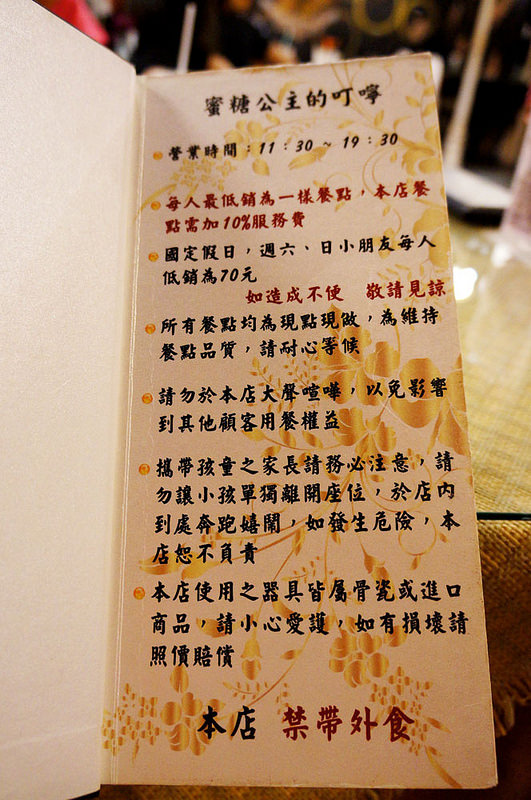 蜜糖公主的叮嚀
營業時間：11：30 ~ 19：30
每人最低銷為一樣餐點，本店餐
點需加10%服務費
國定假日，週六、日小朋友每人
低銷為70元
如造成不便 敬請見諒
所有餐點均為現點現做，為維持
餐點品質，請耐心等候
請勿於本店大聲喧嘩，以免影響
到其他顧客用餐權益
攜帶孩童之家長請務必注意，請
勿讓小孩單獨離開座位，於店內
到處奔跑嬉鬧，如發生危險，本
店恕不負責
本店使用之器具皆屬骨瓷或進口
商品，請小心愛護，如有損壞請
照價賠償
本店 禁帶外食